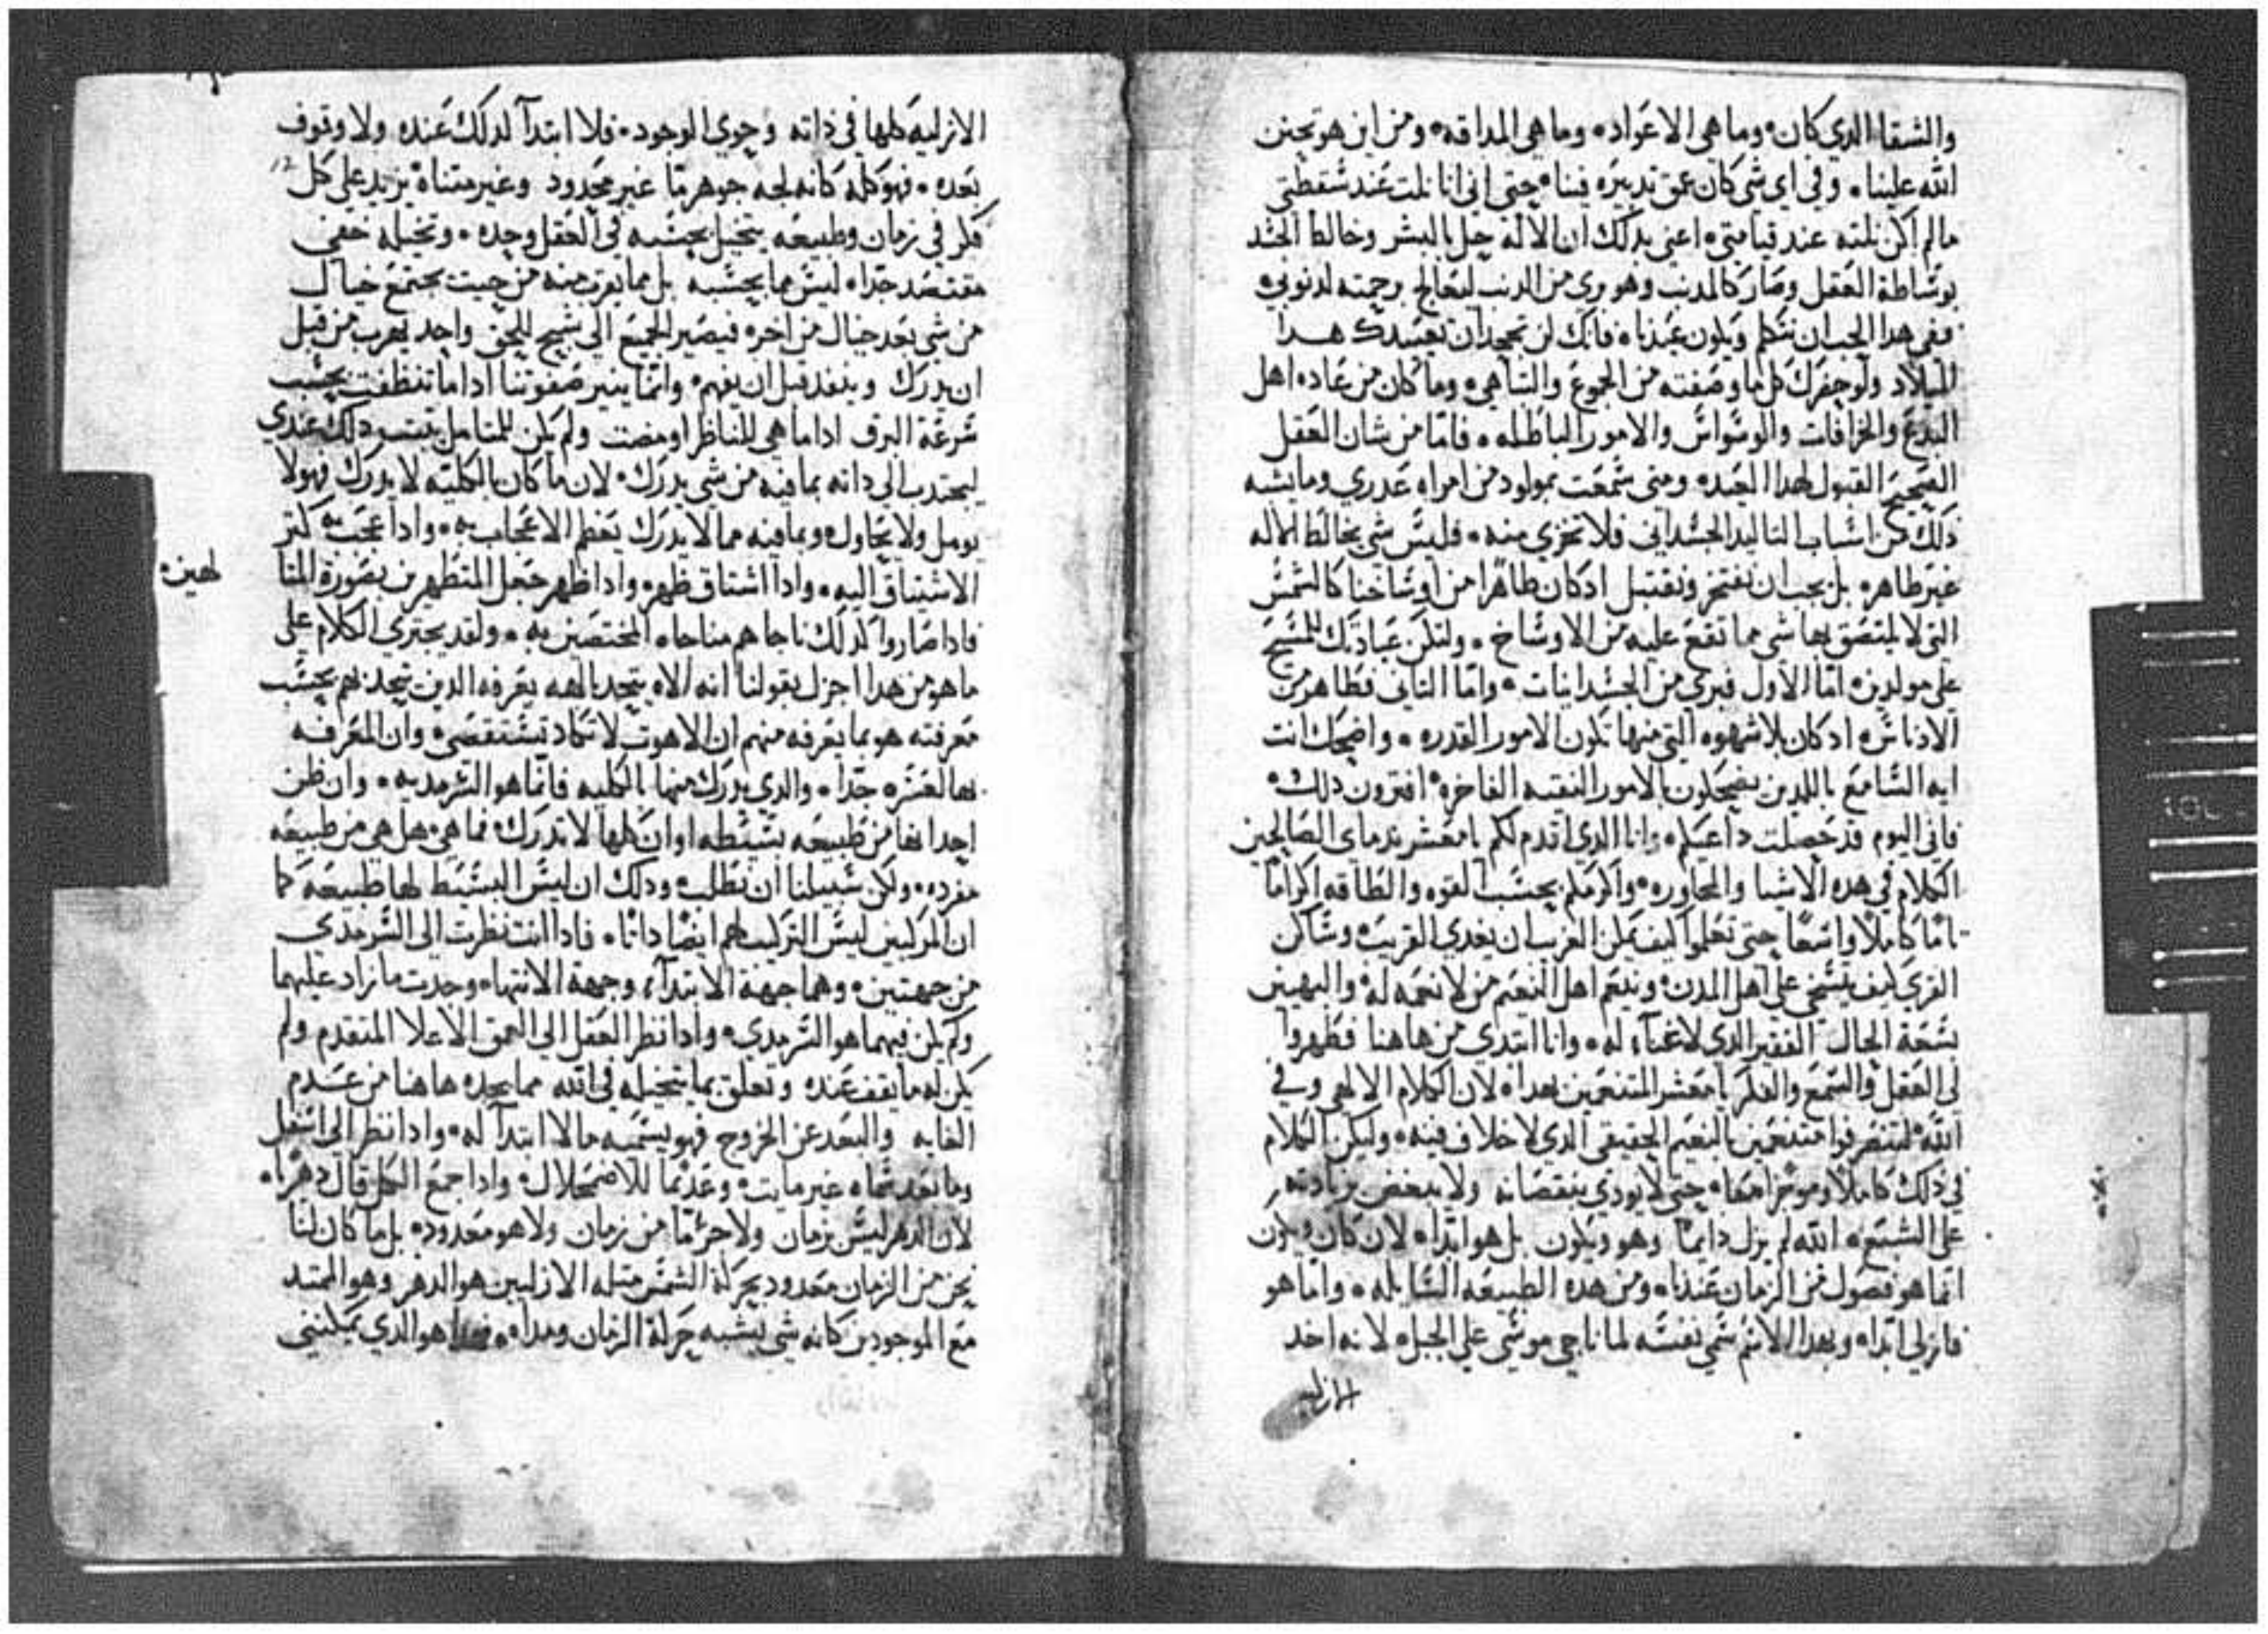 والشقا الدي كان وما هي الاعواد وما هي المداقه ومن اين هو تحنن
الله علينا وفي اي شي كان عمق تدبيره فينا حتي اني انا نلت عند شقطتي
مالم اكن نلته عند قيامتي اعني بدلك ان الاله حل بالبشر وخالط الجشد
بوشاطة العقل وصار كالمدنب وهو بري من الدنب ليعالج برحمته لدنوبي
ففي هدا يجب ان نتكلم ويكون عيدنا فانك لن تجد ان تعيبدك هدا
الميلاد ولوحضرك كل ما وصفته من الجموع والتباهي وما كان من عاده اهل
البدع والخرافات والوشواش والامور الباطله فاما من شان العقل
الصحيح القبول لهدا العيد ومتي شمعت بمولود من امراه عدري وما يشبه
دلك من اشباب التاليد الجشداني فلا تخزي منه فليش شي يخالط الاله
غير طاهر بل يجب ان نفتخر ونقتبل اد كان طاهرا من اوشاخنا كالشمش
التي لا يلتصق بها شي مما تقع عليه من الاوشاخ ولتكن عبادتك للمشيح
علي مولدين اما الاول فبري من الجشدانيات واما التاني فطاهر من
الادناش اد كان بلا شهوه التي منها تكون الامور القدره واضحك انت
ايه الشامع باللدين يضحكون بالامور النقيه الفاخره افترون دلك
فاني اليوم قد حصلت داعيكم وانا الدي اقدم لكم يا معشر ندماي الصالحين
الكلام في هده الاشيا والمحاوره واكرمكم بحشب القوه والطاقه اكراما
تاما كاملا واشعا حتي تعلموا كيف يمكن الغريب ان يغدي القريب وشاكن
القري كيف يتشخي علي اهل المدن وينعم اهل النعيم من لا نعمه له والبهيين
بشعة الحال الفقير الدي لا غناء له وانا ابتدي من هاهنا فطهروا
لي العقل والشمع والفكر يا معشر المتنعمين بهدا لان الكلام الالهي وفي
الله لتنصرفوا متنعمين بالنعيم الحقيقي الدي لا خلاف فيه وليكن الكلام
في دلك كاملا وموجزا معا حتي لا يودي بنقصانه ولا يبغض بزيادته
علي الشبع الله لم يزل دايما وهو ويكون بل هو ابدا لان كان ويكون
انما هو فصول من الزمان عندنا ومن هده الطبيعه الشايله واما هو
فازلي ابدا وبهدا الاشم شمي نفشه لما ناجي موشي علي الجبل لانه اخد
الازليه
الازليه كلها في داته وحوي الوجود فلا ابتدآ لدلك عنده ولا وقوف
بعده فهو كله كانه لجه جوهر ما غير محدود وغير متناه يزيد علي كل
فكر في زمان وطبيعه يتخيل بحشبه في العقل وحده وتخيله خفي
مقتصد جدا ليش مما بحشبه بل مما يقرب منه من حيت يجتمع خيال
من شي بعد خيال من اخر فيصير الجميع الي شبح للحق واحد يهرب من قبل
ان يدرك وينفد قبل ان يفهم وانما ينير صفوتنا ادا ما تنظفت بحشب
شرعة البرق ادا ما هي للناظر اومضت ولم يكن للمتامل دلك عندي
ليجتدب الي داته بما فيه من شي يدرك لان ما كان بالكليه لا يدرك فهو لا
يومل ولا يحاول وبما فيه مما لا يدرك يعظم الاعجاب به وادا عجب به كتر
الاشتياق اليه وادا اشتاق ظهر وادا ظهر جعل المتطهرين بصورة المتا
لهين
فادا صاروا كدلك ناجاهم مناجاه المختصين به ولقد يجتري الكلام علي
ما هو من هدا اجزل بقولنا انه الاه يتحد بالهه يعرفه الدين يتحد بهم بحشب
معرفته هو بما يعرفه منهم ان الاهوت لا تكاد تشتقصي وان المعرفه
بها لعشره جدا والدي يدرك منها بالكليه فانما هو الشرمديه وان ظن
احدا انها من طبيعه بشيطه او ان كلها لا تدرك فما هي هل هي من طبيعه
مفرده ولكن شبيلنا ان نطلب ودلك ان ليش البشيط لها طبيعه كما
ان المركبين ليش التركيب لهم ايضا داتا فادا انت نظرت الي الشرمدي
من جهتين وهما جهة الابتدآء وجهة الانتهاء وجدت ما زاد عليهما
ولم يكن فيهما هو الشرمدي وادا نظر العقل الي العمق الاعلا المتقدم ولم
يكن له ما يقف عنده وتعلق بما يتخيله في الله مما يجده هاهنا من عدم
الغايه والبعد عن الخروج فهو يشميه ما لا ابتدآ له وادا نظر الي اشفل
وما بعد شماه غير مايت وعدتما للاضمحلال وادا جمع الكل قال دهرا
لان الدهر ليش بزمان ولا جزءا ما من زمان ولا هو معدود بل ما كان لنا
نحن من الزمان معدود بحركة الشمش متله الازليين هو الدهر وهو الممتد
مع الموجودين كانه شي يشبه حركة الزمان ومداه فهدا هو الدي يمكنني